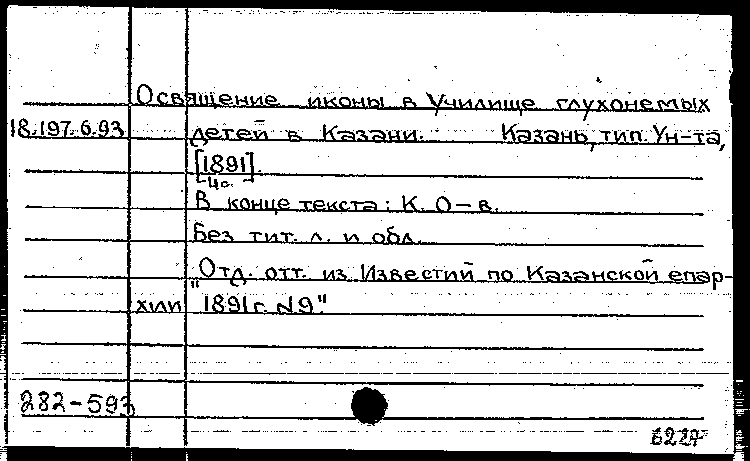 Освящение иконы в Училище глухонемых
18.197.6.93 детей в Казани. Казань, тип. Ун-та,
[1891].
4с.
В конце текста: К. О-в.
Без тит. л. и обл.
"Отд. отт. из Известий по Казанской епар-
хии 1891г. N9".
282-593
6227